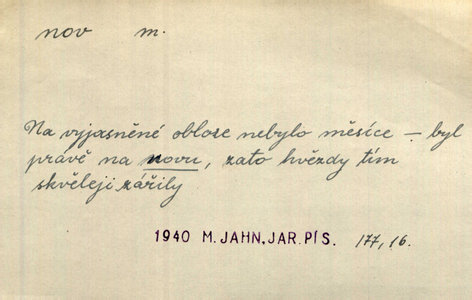 nov m.
Na vyjasněné obloze nebylo měsíce – byl
právě na novu, zato hvězdy tím
skvěleji zářily
1940 M. JAHN, JAR. PÍS. 177, 16.